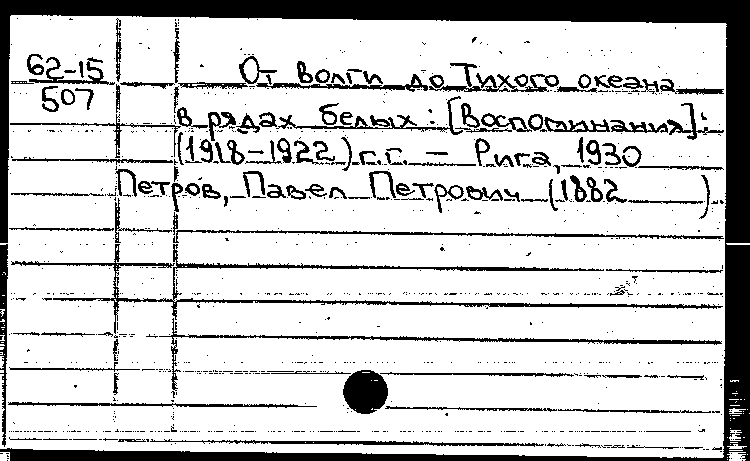 62-15
507
От волги до Тихого океана
в рядах белых : [Воспоминания]:
(1918-1922) г.г. — Рига, 1930
Петров, Павел Петрович (1882 )